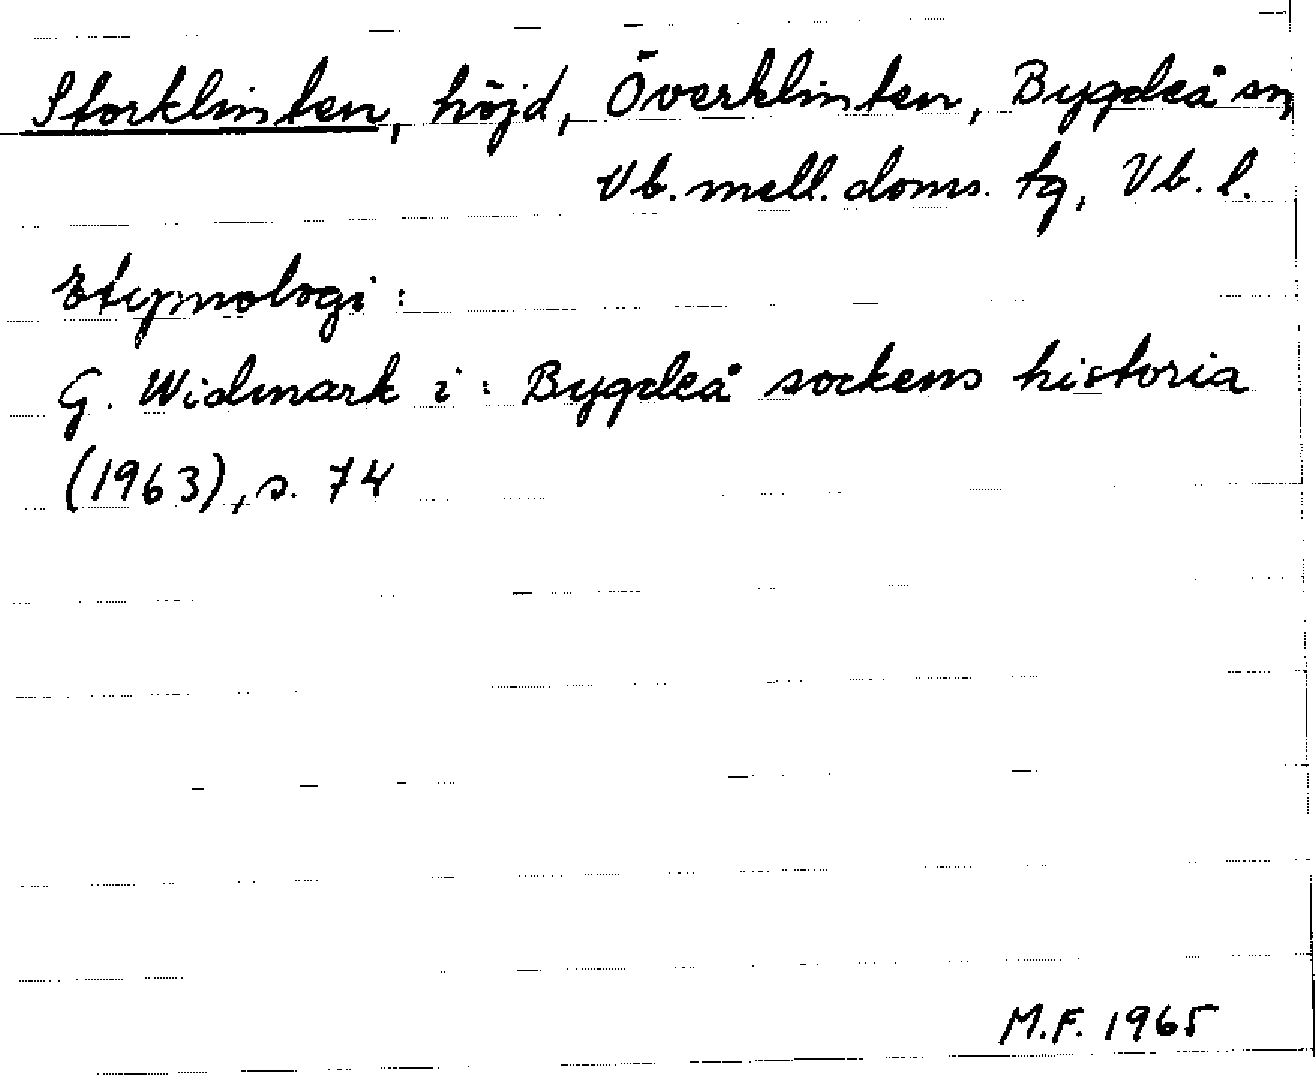 Storklinten, höjd, Överklinten, Bygdeå sn,
Vb. mell. doms. tg, Vb. l.
Etymologi:
G. Widmark i: Bygdeå sockens historia
(1963), s. 74
M.F. 1965